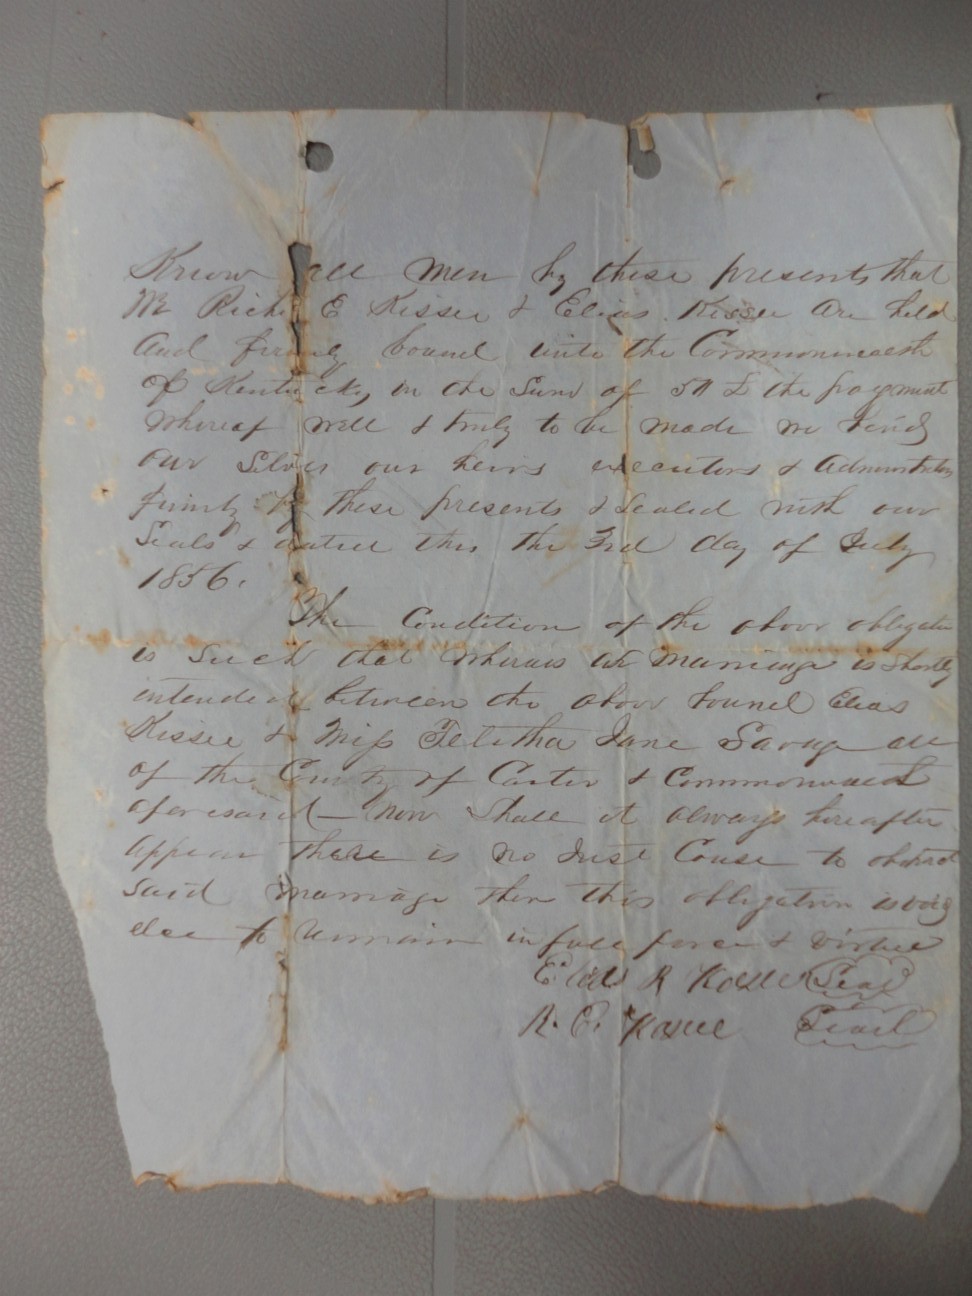 Know all men by these presents that
We Rich E Kissee & Elias Kissee are held
and firmly bound unto the Commonwealth
of Kentucky in the Sum of 50 £ the payment
whereof well & truly to be made we bind
our Selves our heirs executors & administrators
firmly by these presents & Sealed with our
Seals & dated this the 3rd day of July
1856.
The Condition of the above obligation
is Such that whereas a marriage is Shortly
intended between the above bound Elias
Kissee & Miss Telitha Jane Savage all
of the County of Carter & Commonwealth
aforesaid – now Shall it always hereafter
appear there is no Just Cause to obstruct
Said marriage then this obligation is void
else to remain in full force & virtue
Elias R Kissee Seal
R. E. Kissee Seal